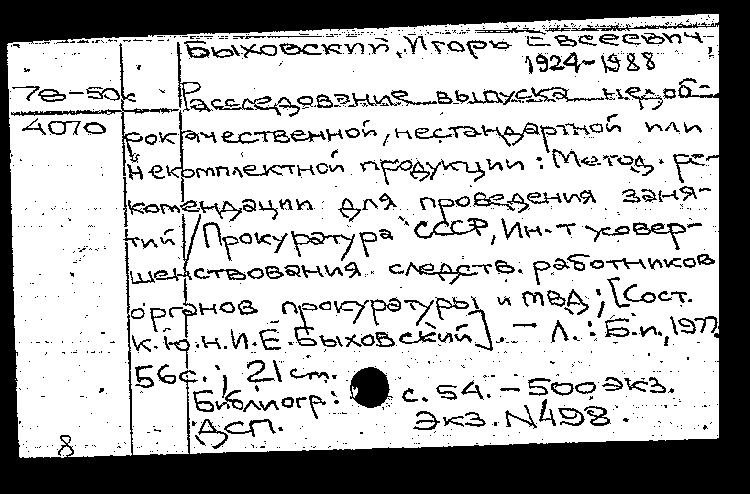 Быховский, Игорь Евсеевич,
1924-1988
78-50к
4070
Расследование выпуска недоб-
рокачественной, нестандартной или
некомплектной продукции: Метод. ре-
комендации для проведения заня-
тий / Прокуратура СССР, Ин-т усовер-
шенствования следств. работников
органов прокуратуры и МВД; [Сост.
к.ю.н. И.Е. Быховский]. - Л.: Б.и., 1977.
56 с.; 21 см.
Библиогр.: с. 54. - 500 экз.
ДСП. Экз. N498.
8